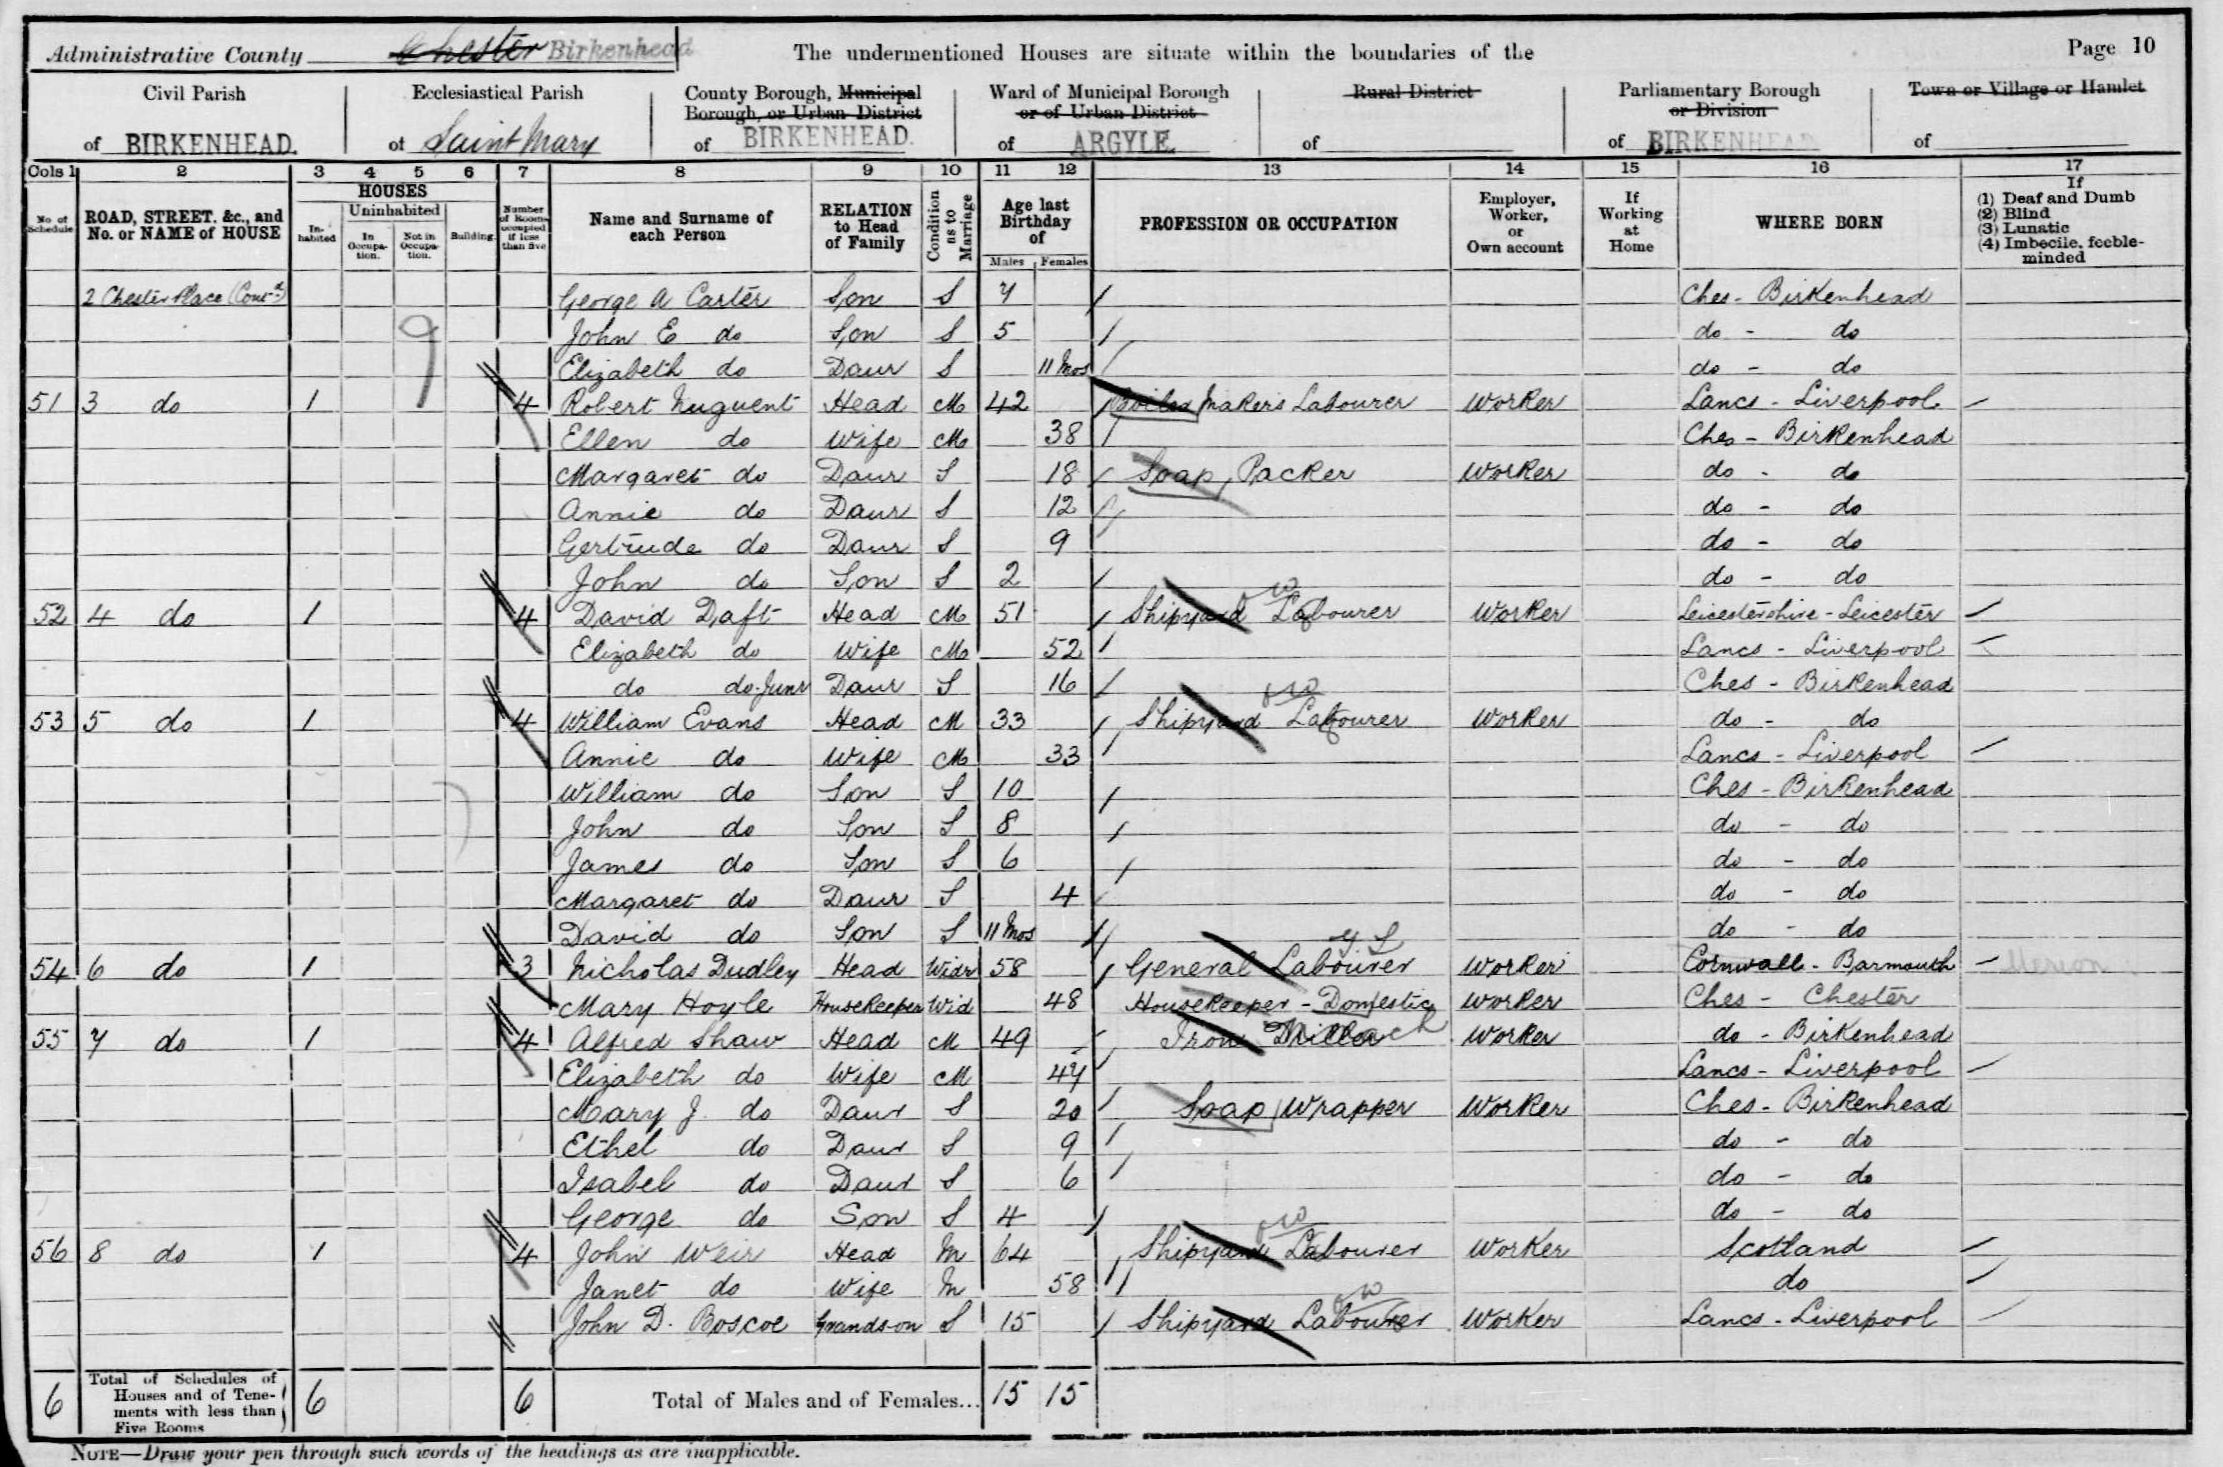 Administrative County Chester Birkenhead The undermentioned Houses are situate within the boundaries of the Page 10
Civil Parish of BIRKENHEAD.
Ecclesiastical Parish of Saint Mary
County Borough, Municipal Borough, or Urban District of BIRKENHEAD.
Ward of Municipal Borough or of Urban District of ARGYLE.
Rural District of
Parliamentary Borough or Division of BIRKENHEAD
Town or Village or Hamlet of
Cols 1 2 3 4 5 6 7 8 9 10 11 12 13 14 15 16 17
No of Schedule
ROAD, STREET, &c., and No. or NAME of HOUSE
HOUSES
Inhabited
Uninhabited
In Occupation.
Not in Occupation.
Building
Number of Rooms occupied if less than five
Name and Surname of each Person
RELATION to Head of Family
Condition as to Marriage
Age last Birthday of
Males Females
PROFESSION OR OCCUPATION
Employer, Worker, or Own account
If Working at Home
WHERE BORN
If
(1) Deaf and Dumb
(2) Blind
(3) Lunatic
(4) Imbecile, feeble-minded
2 Chester Place (Contd) George A Carter Son S 7 Ches - Birkenhead
9
John E do Son S 5 do - do
Elizabeth do Daur S 11 Mos do - do
51 3 do 1 4 Robert Nuguent Head M 42 Boiler Makers Labourer Worker Lancs - Liverpool
Ellen do Wife M 38 Ches - Birkenhead
Margaret do Daur S 18 Soap Packer Worker do - do
Annie do Daur S 12 do - do
Gertrude do Daur S 9 do - do
John do Son S 2 do - do
52 4 do 1 4 David Daft Head M 51 Shipyard Labourer Worker Leicestershire - Leicester
Elizabeth do Wife M 52 Lancs - Liverpool
do do Junr Daur S 16 Ches - Birkenhead
53 5 do 1 4 William Evans Head M 33 Shipyard Labourer Worker do - do
Annie do Wife M 33 Lancs - Liverpool
William do Son S 10 Ches - Birkenhead
John do Son S 8 do - do
James do Son S 6 do - do
Margaret do Daur S 4 do - do
David do Son S 11 Mos do - do
54 6 do 1 3 Nicholas Dudley Head Widr 58 General Labourer G. L Worker Cornwall - Barmouth Merion
Mary Hoyle Housekeeper Wid 48 Housekeeper - Domestic Worker Ches - Chester
55 7 do 1 4 Alfred Shaw Head M 49 Iron Worker do - Birkenhead
Elizabeth do Wife M 47 Lancs - Liverpool
Mary J. do Daur S 20 Soap Wrapper Worker Ches - Birkenhead
Ethel do Daur S 9 do - do
Isabel do Daur S 6 do - do
George do Son S 4 do - do
56 8 do 1 4 John Weir Head M 64 Shipyard Labourer Worker Scotland
Janet do Wife M 58 do
John D. Boscoe Grandson S 15 Shipyard Labourer Worker Lancs - Liverpool
6 Total of Schedules of Houses and of Tenements with less than Five Rooms 6 6 Total of Males and of Females... 15 15
NOTE—Draw your pen through such words of the headings as are inapplicable.